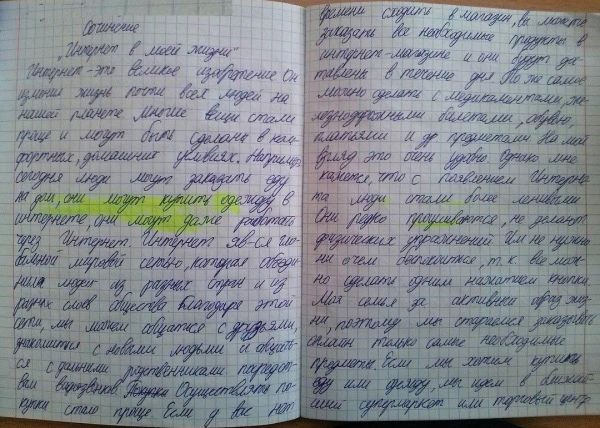 Сочинение
"Интернет в моей жизни"
Интернет - это великое изобретение Он
изменил жизнь почти всех людей на
нашей планете многие вещи стали
проще и могут быть сделаны в ком-
фортных, домашних условиях. Например
сегодня люди могут заказать еду
на дом, они могут купить одежду в
интернете, они могут даже работать
через Интернет. Интернет яв-ся гло-
бальной мировой сетью, которая объеди-
нила людей из разных стран и из
разных слоев общества Благодаря этой
сети, мы можем общаться с друзьями,
знакомится с новыми людьми и общать-
ся с дальними родственниками посредст-
вам видеозвонков Осуществлять по-
купки стало проще. Если у вас нет
времени сходить в магазин, вы можете
заказать все необходимые продукты в
интернет-магазине и они будут до-
ставлены в течение дня То же самое
можно сделать с медикаментами, же-
лезнодорожными билетами, обувью,
платьями и др предметами. На мой
взгляд это очень удобно Однако мне
кажется, что с появлением Интерне-
та люди стали более ленивыми
Они редко прогуливаются, не делают
физических упражнений Им не нужно
ни о чем беспокоиться, т.к. все мож-
но сделать одним нажатием кнопки.
Моя семья за активный образ жиз-
ни, поэтому мы стараемся заказывать
онлайн только самые необходимые
предметы. Если мы хотим купить
еду или одежду, мы идем в ближай-
ший супермаркет или торговый центр